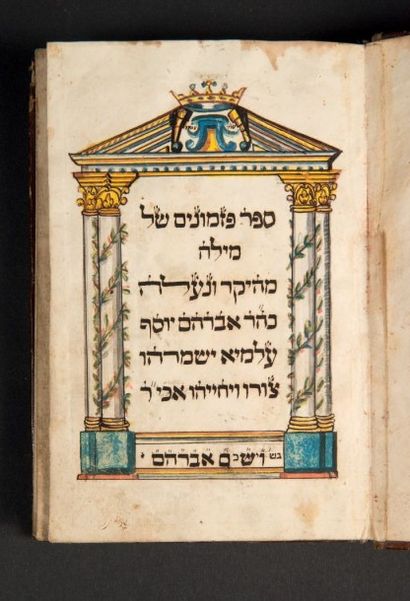 ספר פזמונים של
מילה
מהיקר ונעלה
כהר אברהם יוסף
עלמיא ישמרהו
צורו ויחייהו אכי״ר
וישכם אברהם